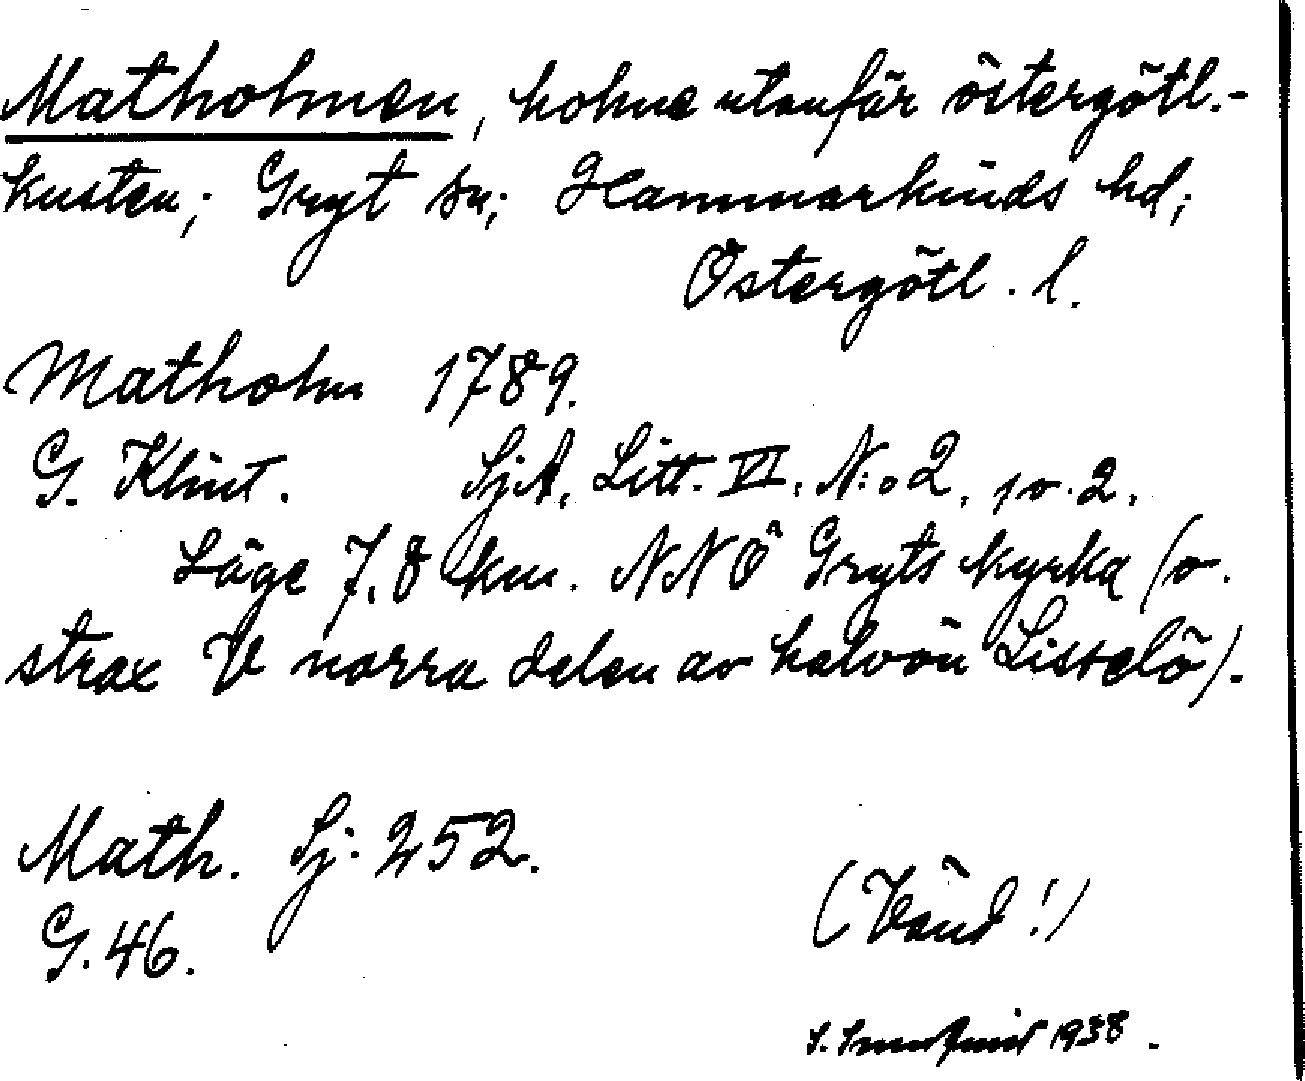 Matholmen, holme utanför östergötl.-
kusten; Gryt sn; Hammarkinds hd;
Östergötl. l.
Matholm 1789.
G. Klint. SjA, Litt. VI. N:o 2, p v. 2.
Läge 7,8 km. NNÖ Gryts kyrka (o.
strax V norra delen av halvön Lisselö).
Math. Sj: 252.
G. 46.
(Vänd!)
S. 1938.